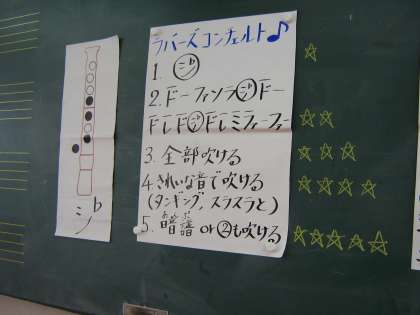 シ♭
ラバーズコンチェルト♪
1. シ♭
2. ドーファソラシ♭ドー
ドレドシ♭ドレミファーファー
3. 全部吹ける
4. きれいな音で吹ける
(タンギング, スラスラと)
5. 音譜 or ②も吹ける
☆
☆☆
☆☆☆
☆☆☆☆
☆☆☆☆☆